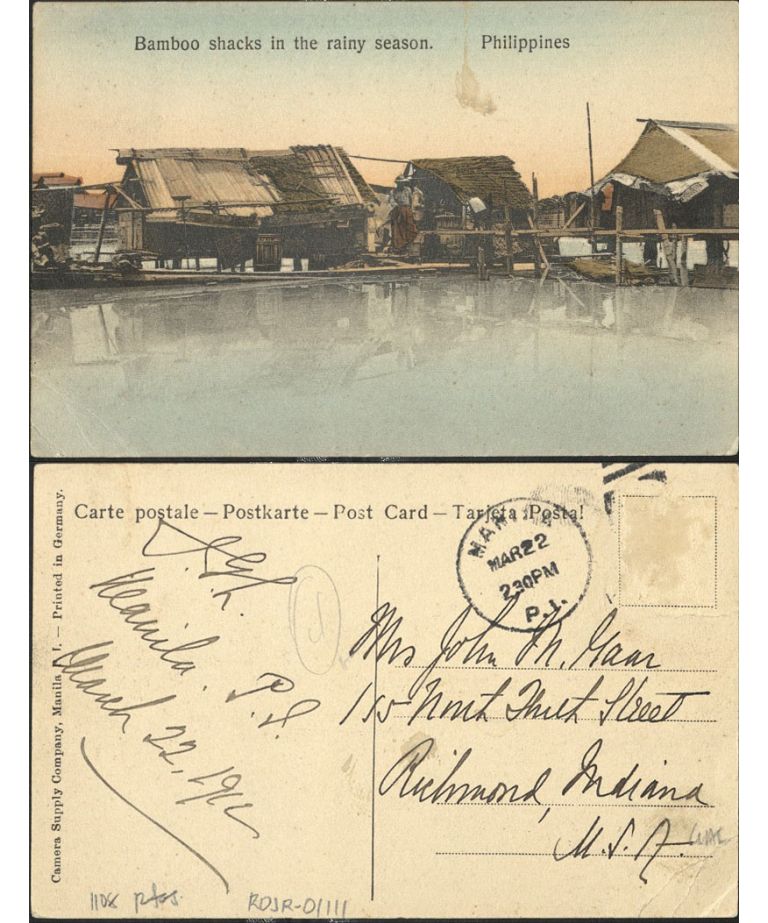 Bamboo shacks in the rainy season. Philippines
Carte postale — Postkarte — Post Card — Tarjeta Postal
MANILA
MAR 22
2 30 PM
P.I.
Manila. P.I.
March 22, 1912
Mrs John M. Gaar
North Street
Richmond, Indiana
U.S.A.
Camera Supply Company, Manila P. I. — Printed in Germany.
ROJR-01111